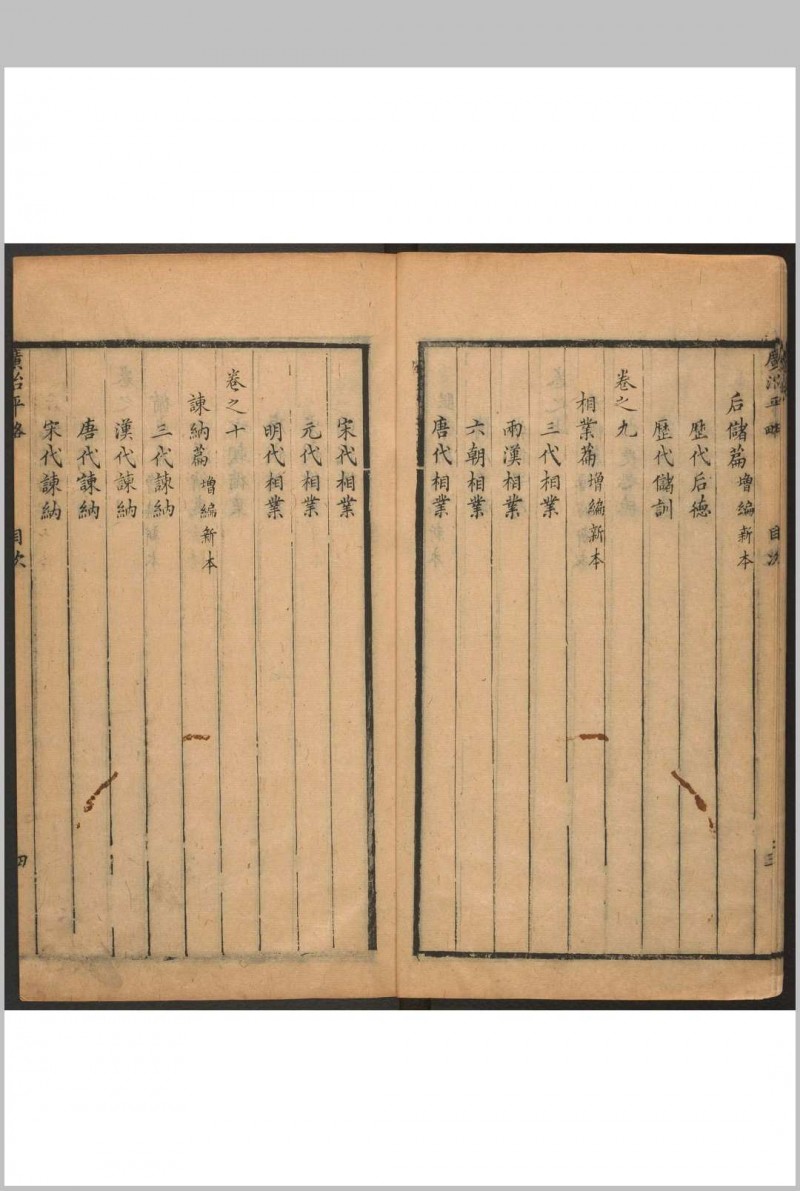 廣治平略 目次 三
后儲篇 增編新本
歷代后德
歷代儲訓
卷之九
相業篇 增編新本
三代相業
兩漢相業
六朝相業
唐代相業
宋代相業
元代相業
明代相業
卷之十
諫納篇 增編新本
三代諫納
漢代諫納
唐代諫納
宋代諫納
廣治平略 目次 四